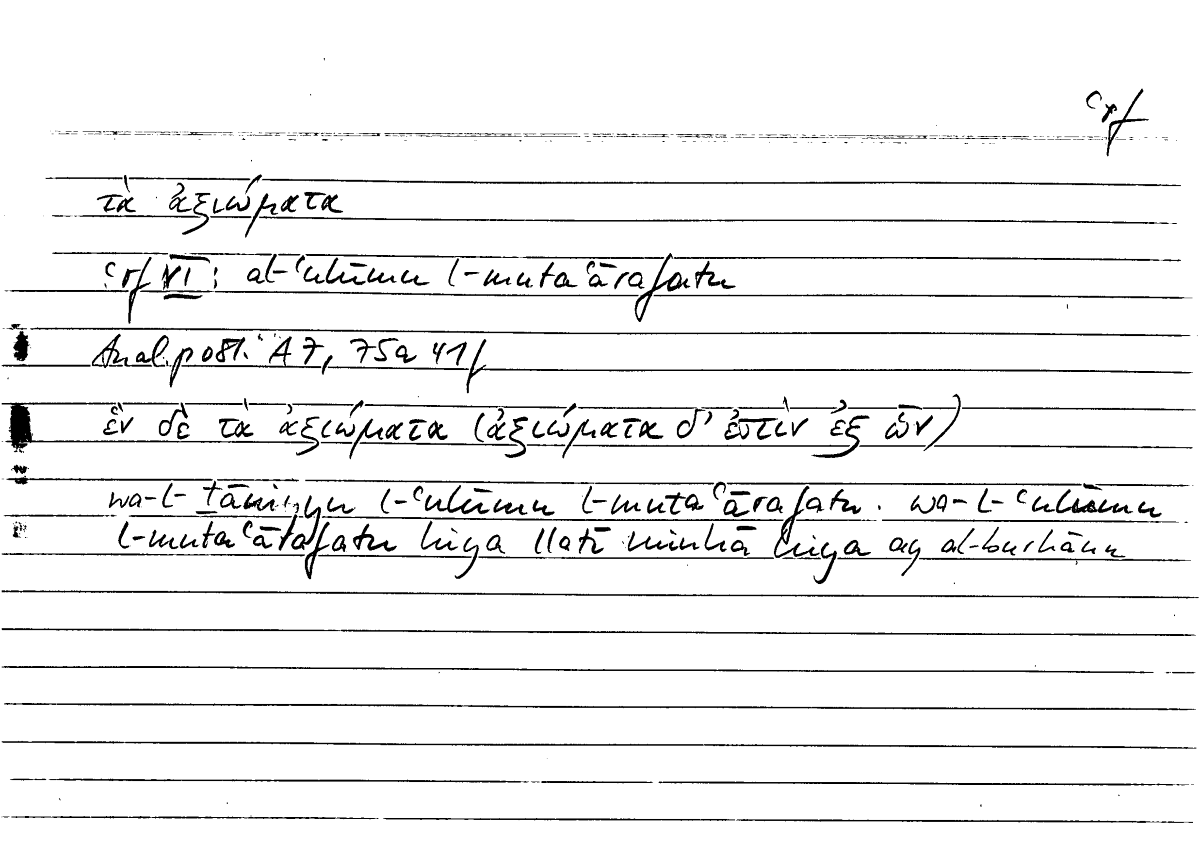 ʿrf
τὰ ἀξιώματα
ʿrf VI: al-ʿulūmu l-mutaʿārafatu
Anal. post. A 7, 75a 41f
ἓν δὲ τὰ ἀξιώματα (ἀξιώματα δ' ἐστὶν ἐξ ὧν)
wa-l-ṯāniyu l-ʿulūmu l-mutaʿārafatu. wa-l-ʿulūmu
l-mutaʿārafatu hiya llatī minhā hiya ay al-burhānu